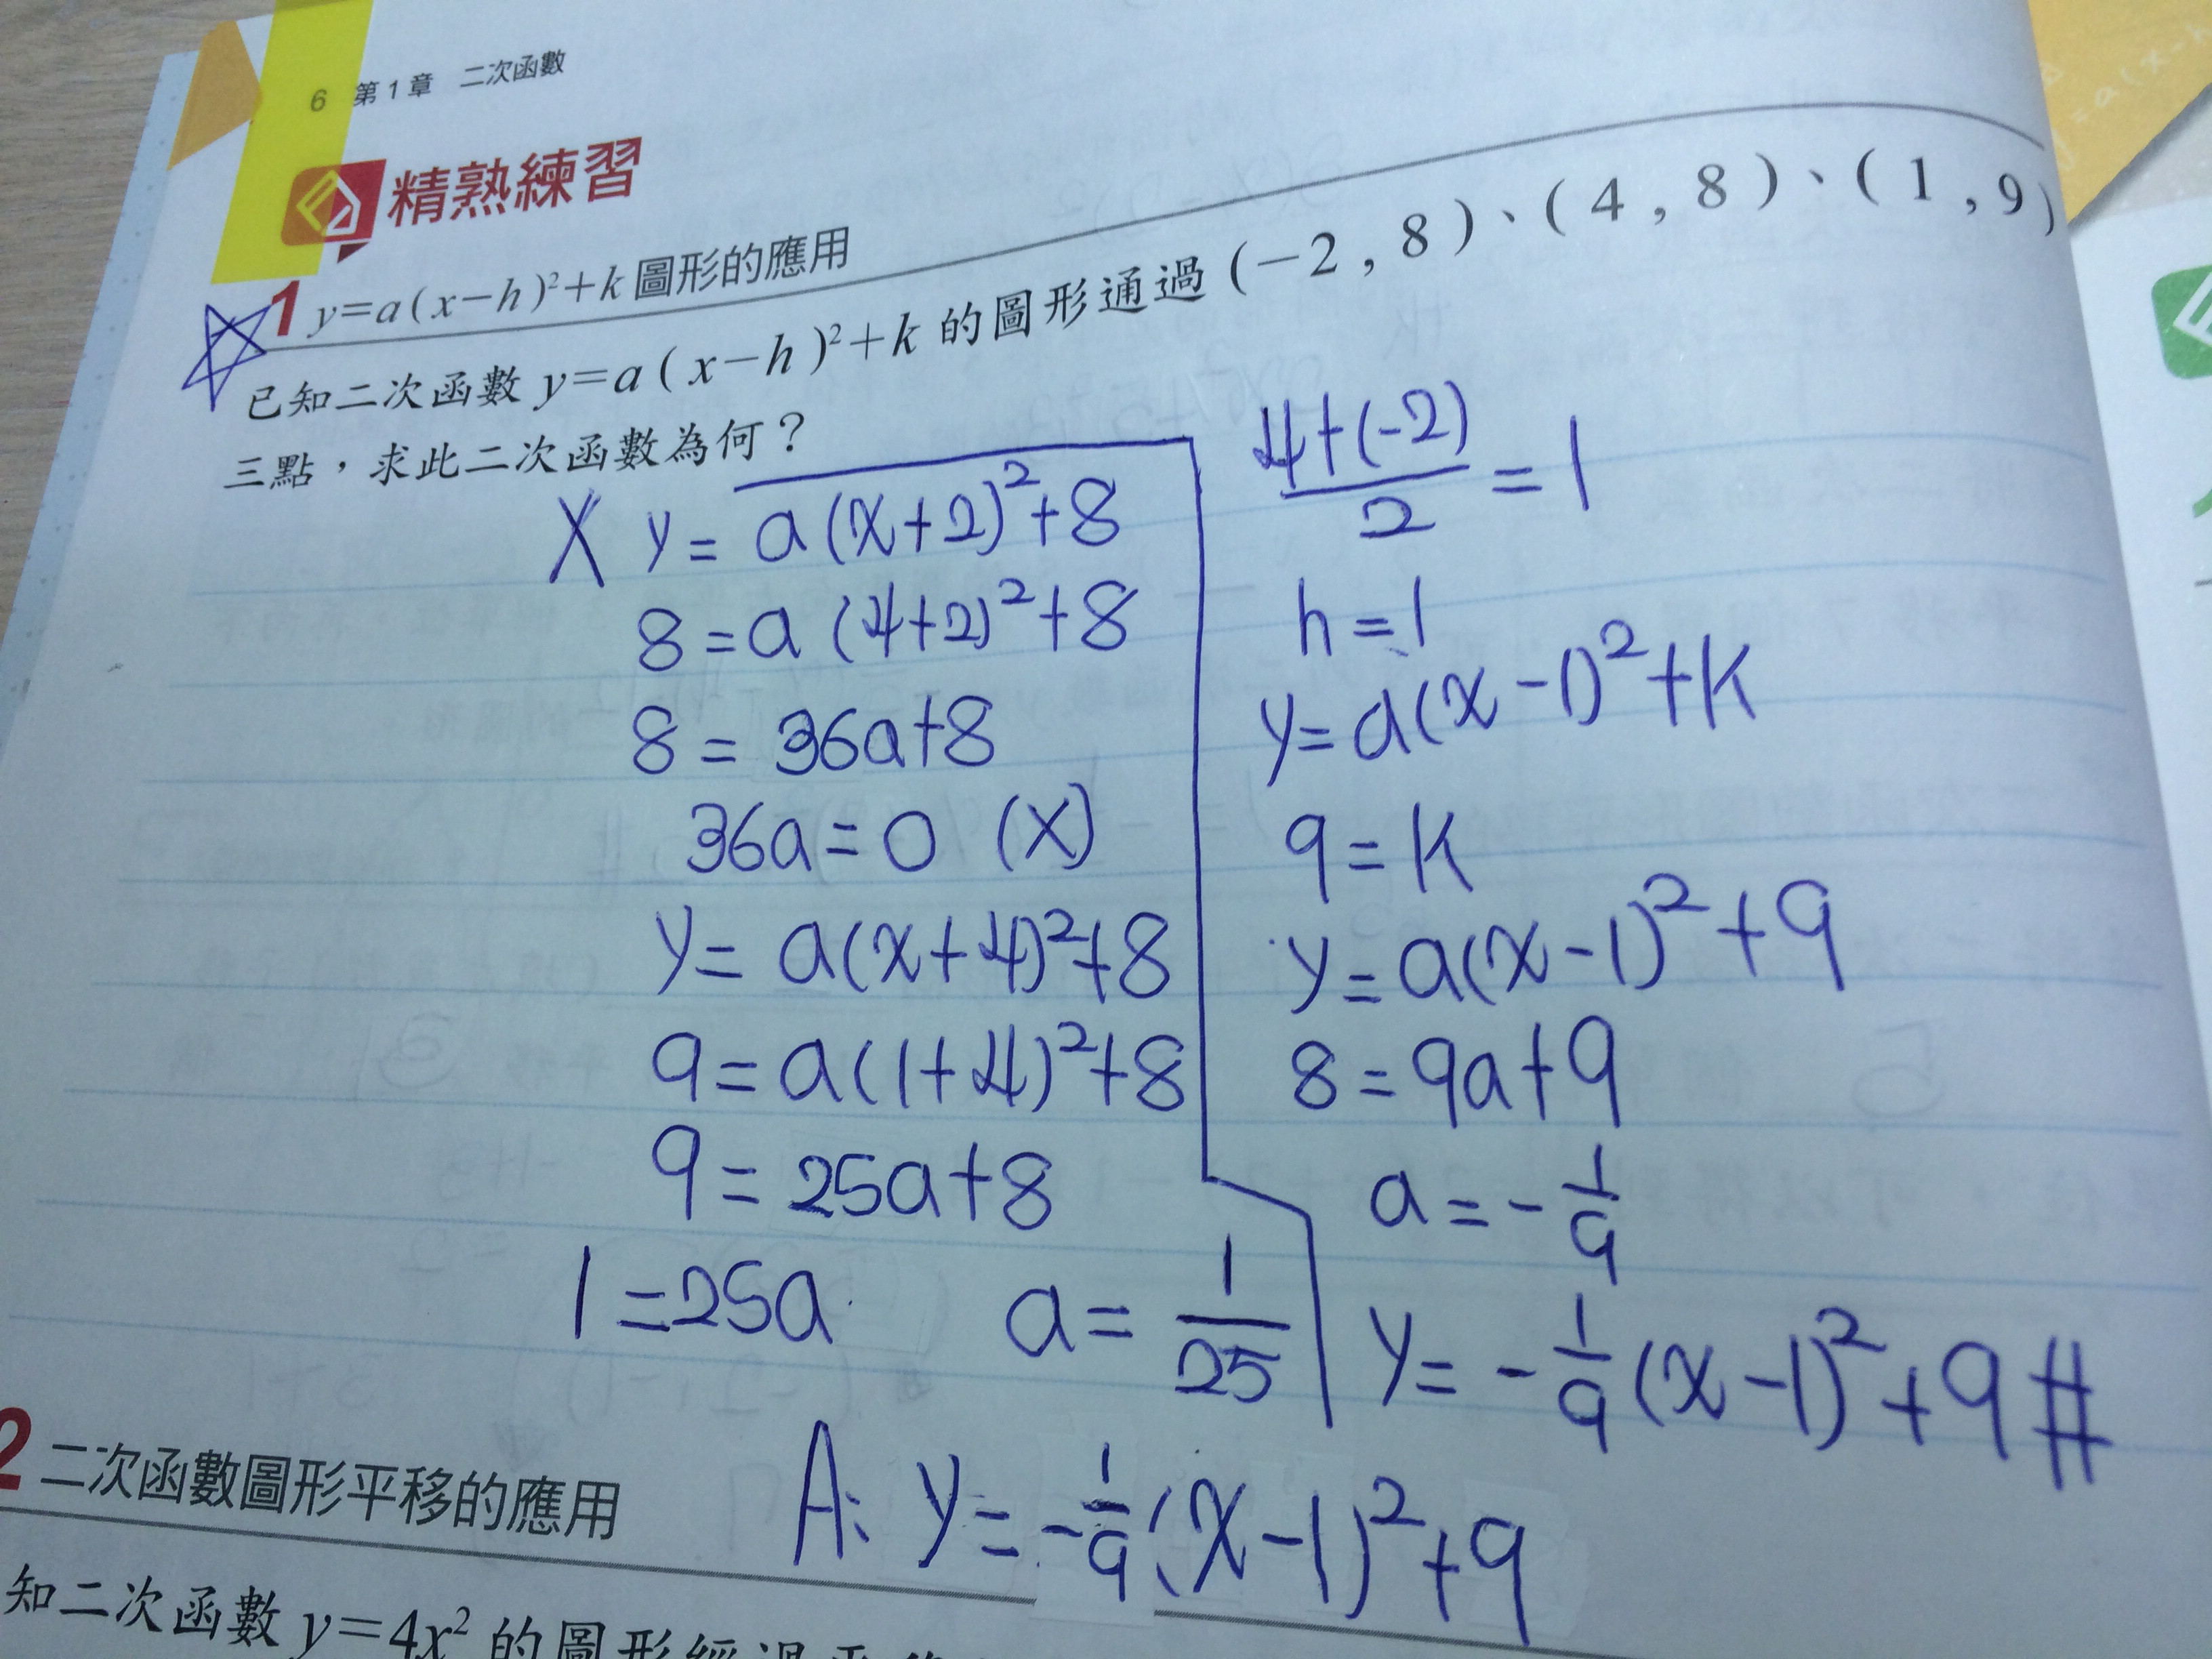 6 第1章 二次函數
精熟練習
1 y=a(x-h)²+k 圖形的應用
已知二次函數 y=a(x-h)²+k 的圖形通過(-2,8)、(4,8)、(1,9)
三點,求此二次函數為何?
X y=a(x+2)²+8
8=a(4+2)²+8
8=36a+8
36a=0 (X)
y=a(x+4)²+8
9=a(1+4)²+8
9=25a+8
1=25a a=1/25
4+(-2)/2=1
h=1
y=a(x-1)²+k
9=k
y=a(x-1)²+9
8=9a+9
a=-1/9
y=-1/9(x-1)²+9#
A: y=-1/9(x-1)²+9
2 二次函數圖形平移的應用
知二次函數 y=4x² 的圖形經過平